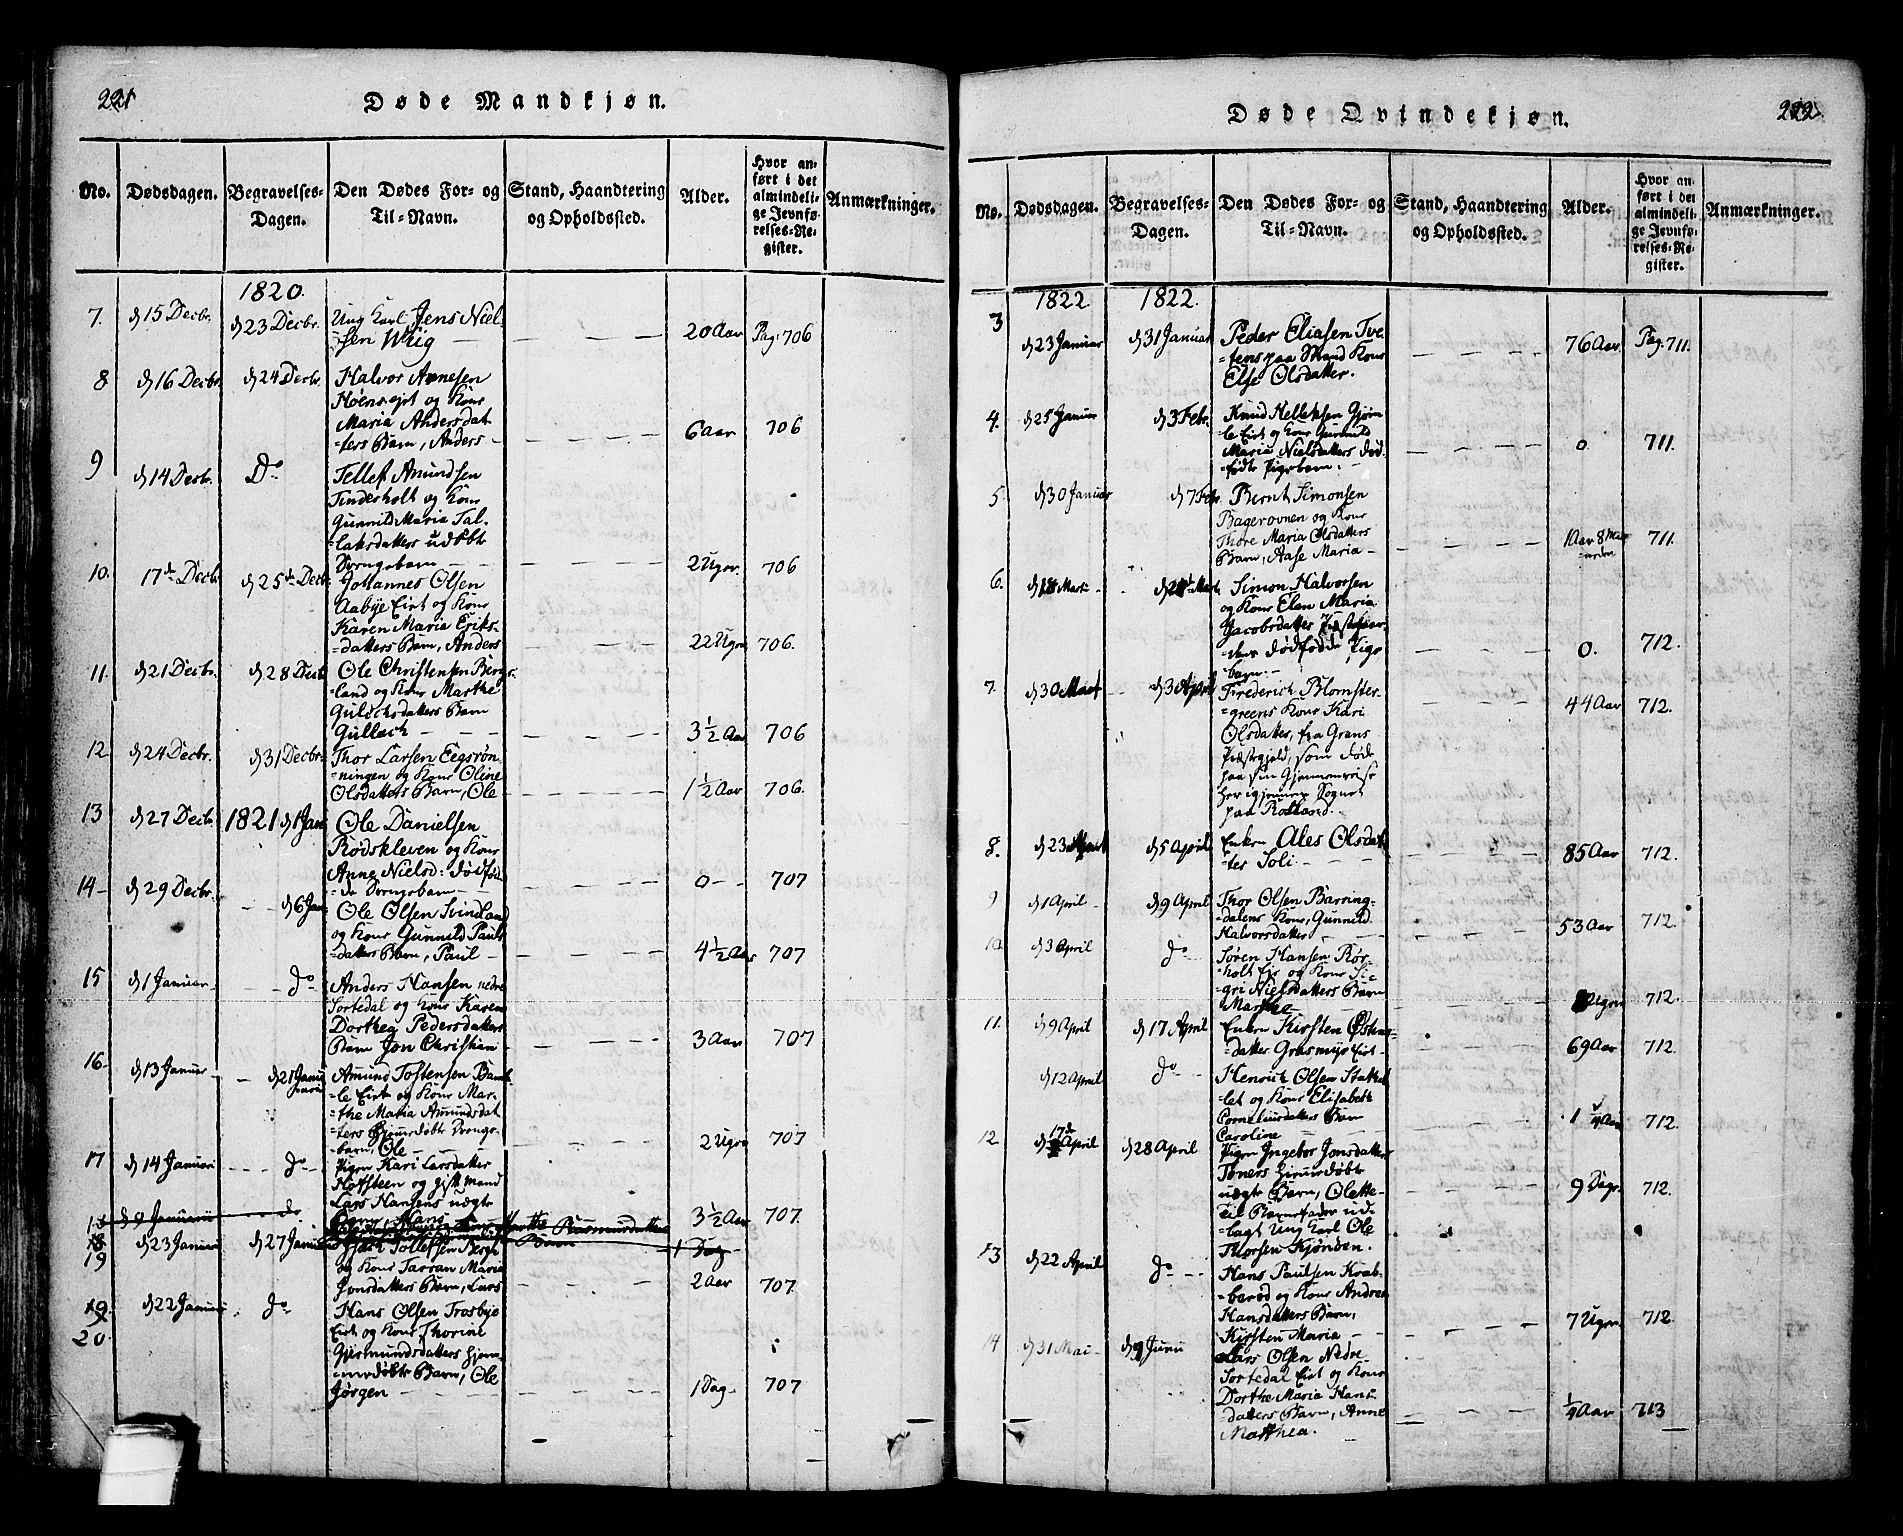 221
Døde Mandkjøn.
No.
Dødsdagen.
Begravelses-
Dagen.
Den Dødes For- og
Til-Navn.
Stand, Haandtering
og Opholdssted.
Alder.
Hvor an-
ført i det
almindeli-
ge Jevnfø-
relses-Re-
gister.
Anmærkninger.
1820.
7. d 15 Decbr. d 23 Decbr. Ung Karl Jens Niel-
sen Wrig — 20 Aar Pag: 706
8 d 16 Decbr. d 24 Decbr. Halvor Arnesen
og Kons
Maria Andersdat
-ters Barn, Anders - 6 Aar 706
9 d 14 Decbr. Do Tellef Amundsen
Tinderholt og Kons
Gunnild Maria Tal-
-laksdatters udøbte
Drengebarn 2 Uger. 706
10. 17de Decb. d 25de Decbr Johannes Olsen
Aabye Eiet og Kons
Karen Maria Eriks-
-datters Barn, Anders 22 Ugr 706.
11. d 21 Decbr. d 28 Decb Ole Christensen Berge-
land og Kons Marthe
Gulichsdatters Barn
Gullach 3 1/2 Aar 706
12 d 24 Decbr. d 31 Decbr. Thor Larsen Eegsrøn-
-ningen og Kons Oline
Olsdatters Barn, Ole 1 1/2 Aar 706.
13 d 27 Decb. 1821 d 1 Jan Ole Danielsen
Rødskleven og Kons
Anne Nielsd: dødfød-
-de Drengebarn 0 707
14 d 29 Decbr. d 6 Jan Ole Olsen Svinland
og Kons Gunnild Pauls
datters Barn, Paul - 4 1/2 Aar 707
15 d 1 Januar do Anders Hansen nedre
Sortedal og Kons Karen
Dorthea Pedersdatters
Barn Jon Christian 3 Aar 707
16 d 13 Januar d 21 Janu Amund Tostensen Bam-
-le Eiet og Kons Mar-
-the Maria Amundsdat
-ters hjemmedøbte Drenge-
-barn, Ole 2 Ugr 707
17 d 14 Januari do Pigen Kari Larsdatter
Hoffsteen og gift mand
Lars Hansens uægte
Barn, Hans 3 1/2 Aar 707.
Januari do Marthe Rasmusdatter
Barn 1 Dag
18 d 23 Januar d 27 Januar Tollefsen Bergh
19 og Kons Taran Maria
Jonsdatters Barn, Lars 2 Aar 707.
19. d 22 Januar do Hans Olsen Trosbye
20. Eiet og Kons Thorine
Gjermundsdatters hjem-
-medøbte Barn, Ole
Jørgen 1 Dag 707
222
Døde Qvindekjøn.
No.
Dødsdagen.
Begravelses-
Dagen.
Den Dødes For- og
Til-Navn.
Stand, Haandtering
og Opholdssted.
Alder.
Hvor an-
ført i det
almindeli-
ge Jevnfø-
relses-Re-
gister.
Anmærkninger.
1822. 1822.
3 d 23 Januar d 31 Januar Peder Eliasen Tve-
-tens paa Strand Kons
Else Olsdatter. 76 Aar Pag. 711.
4. d 25 Januar d 3 Febr. Knud Nelleksen Gjøm
-le Eiet og Kons Gunnild
Maria Nielsdatters død-
-fødte Pigebarn. 0. 711.
5 d 30 Januar d 7 Febr. Bernt Simonsen
Bagerovnen og Kons
Thore Maria Olsdatters
Barn, Aase Maria - 1 Aar 8 Maa-
-neder 711.
6. d 18 Marti d 24 Marti Simon Halvorsen
og Kons Elen Maria
Jacobsdatter
dødfødde Pige
barn 0. 712.
7. d 30 Mart d 3 April Friederich Blomster-
-greens Kons Kari
Olsdatter, fra Grans
Præstegjeld, som døde
paa sin Gjennemreise
her igjennem Sognet
paa Rolland. 44 Aar 712.
8. d 23 Mart d 5 April Enken Ales Olsdat
-ter Soli - 85 Aar 712.
9 d 1 April d 9 April Thor Olsen Barring-
-dalens Kons, Gunnild
Halvorsdatter 53 Aar 712.
10. d 3 April do Søren Hansen Rør-
-holt Eje og Kons Si-
-gri Nielsdatters Barn
Marthe Ugr 712.
11. d 9 April d 17 April Enken Kirsten Østens-
-datter Grasmyr Eiet 69 Aar 712.
d 12 April do Henrich Olsen Stathel
let og Kons Elisabeth
Corneliusdatters Barn
Caroline 1 1/4 Aar 712.
12. d 17de April d 28 April Pigen Ingebor Jonsdatter
Toners hjemmedøbte
uægte Barn, Olette-
til Barnefader ud-
-lagt Ung Karl Ole
Thorsen Kjønden. 9 Dage 712.
13 d 22 April do Hans Paulsen Krab-
-berød og Kons Andrea
Hansdatters Barn,
Kirsten Maria 7 Ugr 712.
14 d 31 Mai d 9 Juni Lars Olsen Nedre
Sortedal Eiet og Kons
Dorthe Maria Hans-
datters Barn, Anne
Matthea. 1/4 Aar 713